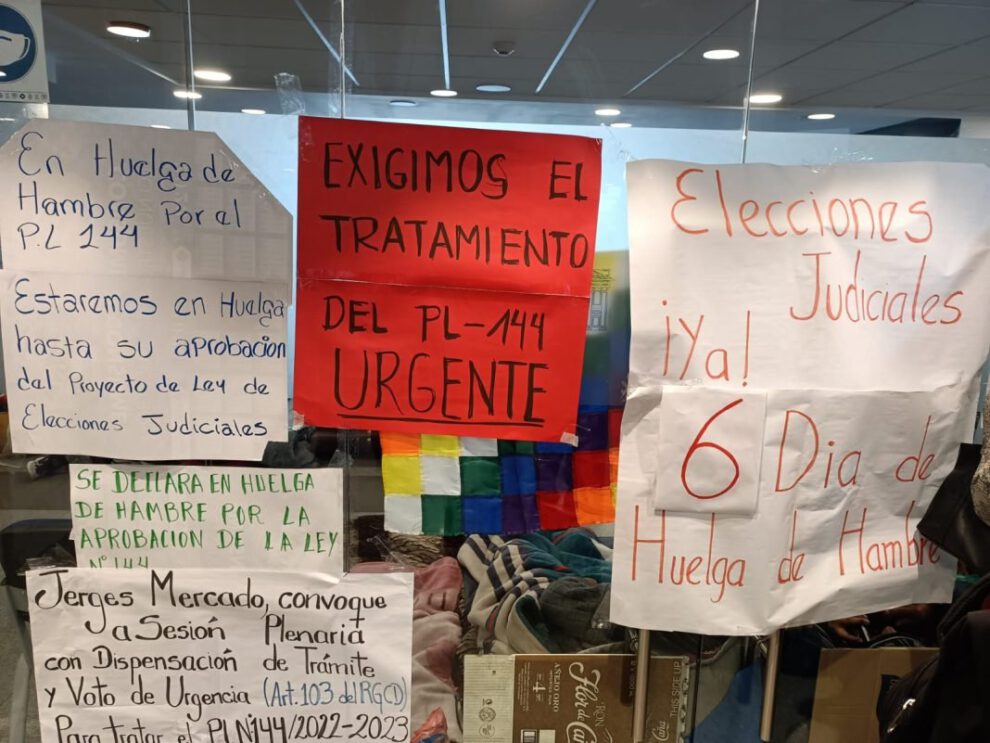 En Huelga de
Hambre Por el
P.L 144
Estaremos en Huelga
hasta su aprobacion
del Proyecto de Ley de
Elecciones Judiciales
EXIGIMOS EL
TRATAMIENTO
DEL PL-144
URGENTE
Elecciones
Judiciales
¡Ya!
6 Dia de
Huelga de Hambre
SE DECLARA EN HUELGA
DE HAMBRE POR LA
APROBACION DE LA LEY
Nº 144
Jerges Mercado, convoque
a Sesión Plenaria
con Dispensación de Trámite
y Voto de Urgencia (Art.103 del RGCD)
Para tratar el PL Nº144/2022-2023
RON
Flor de Caña
AÑEJO ORO
4
THIS SIDE